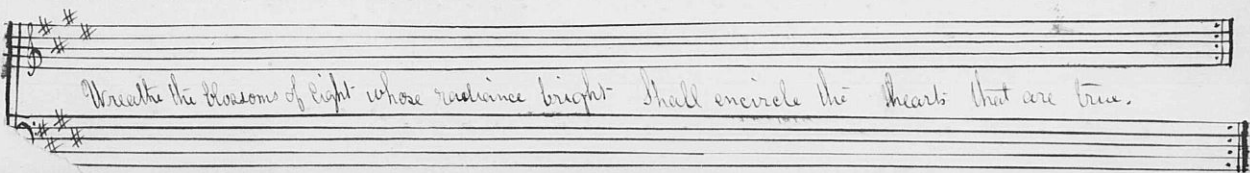 Wreathe the blossoms of light whose radiance bright Shall encircle the hearts that are true.